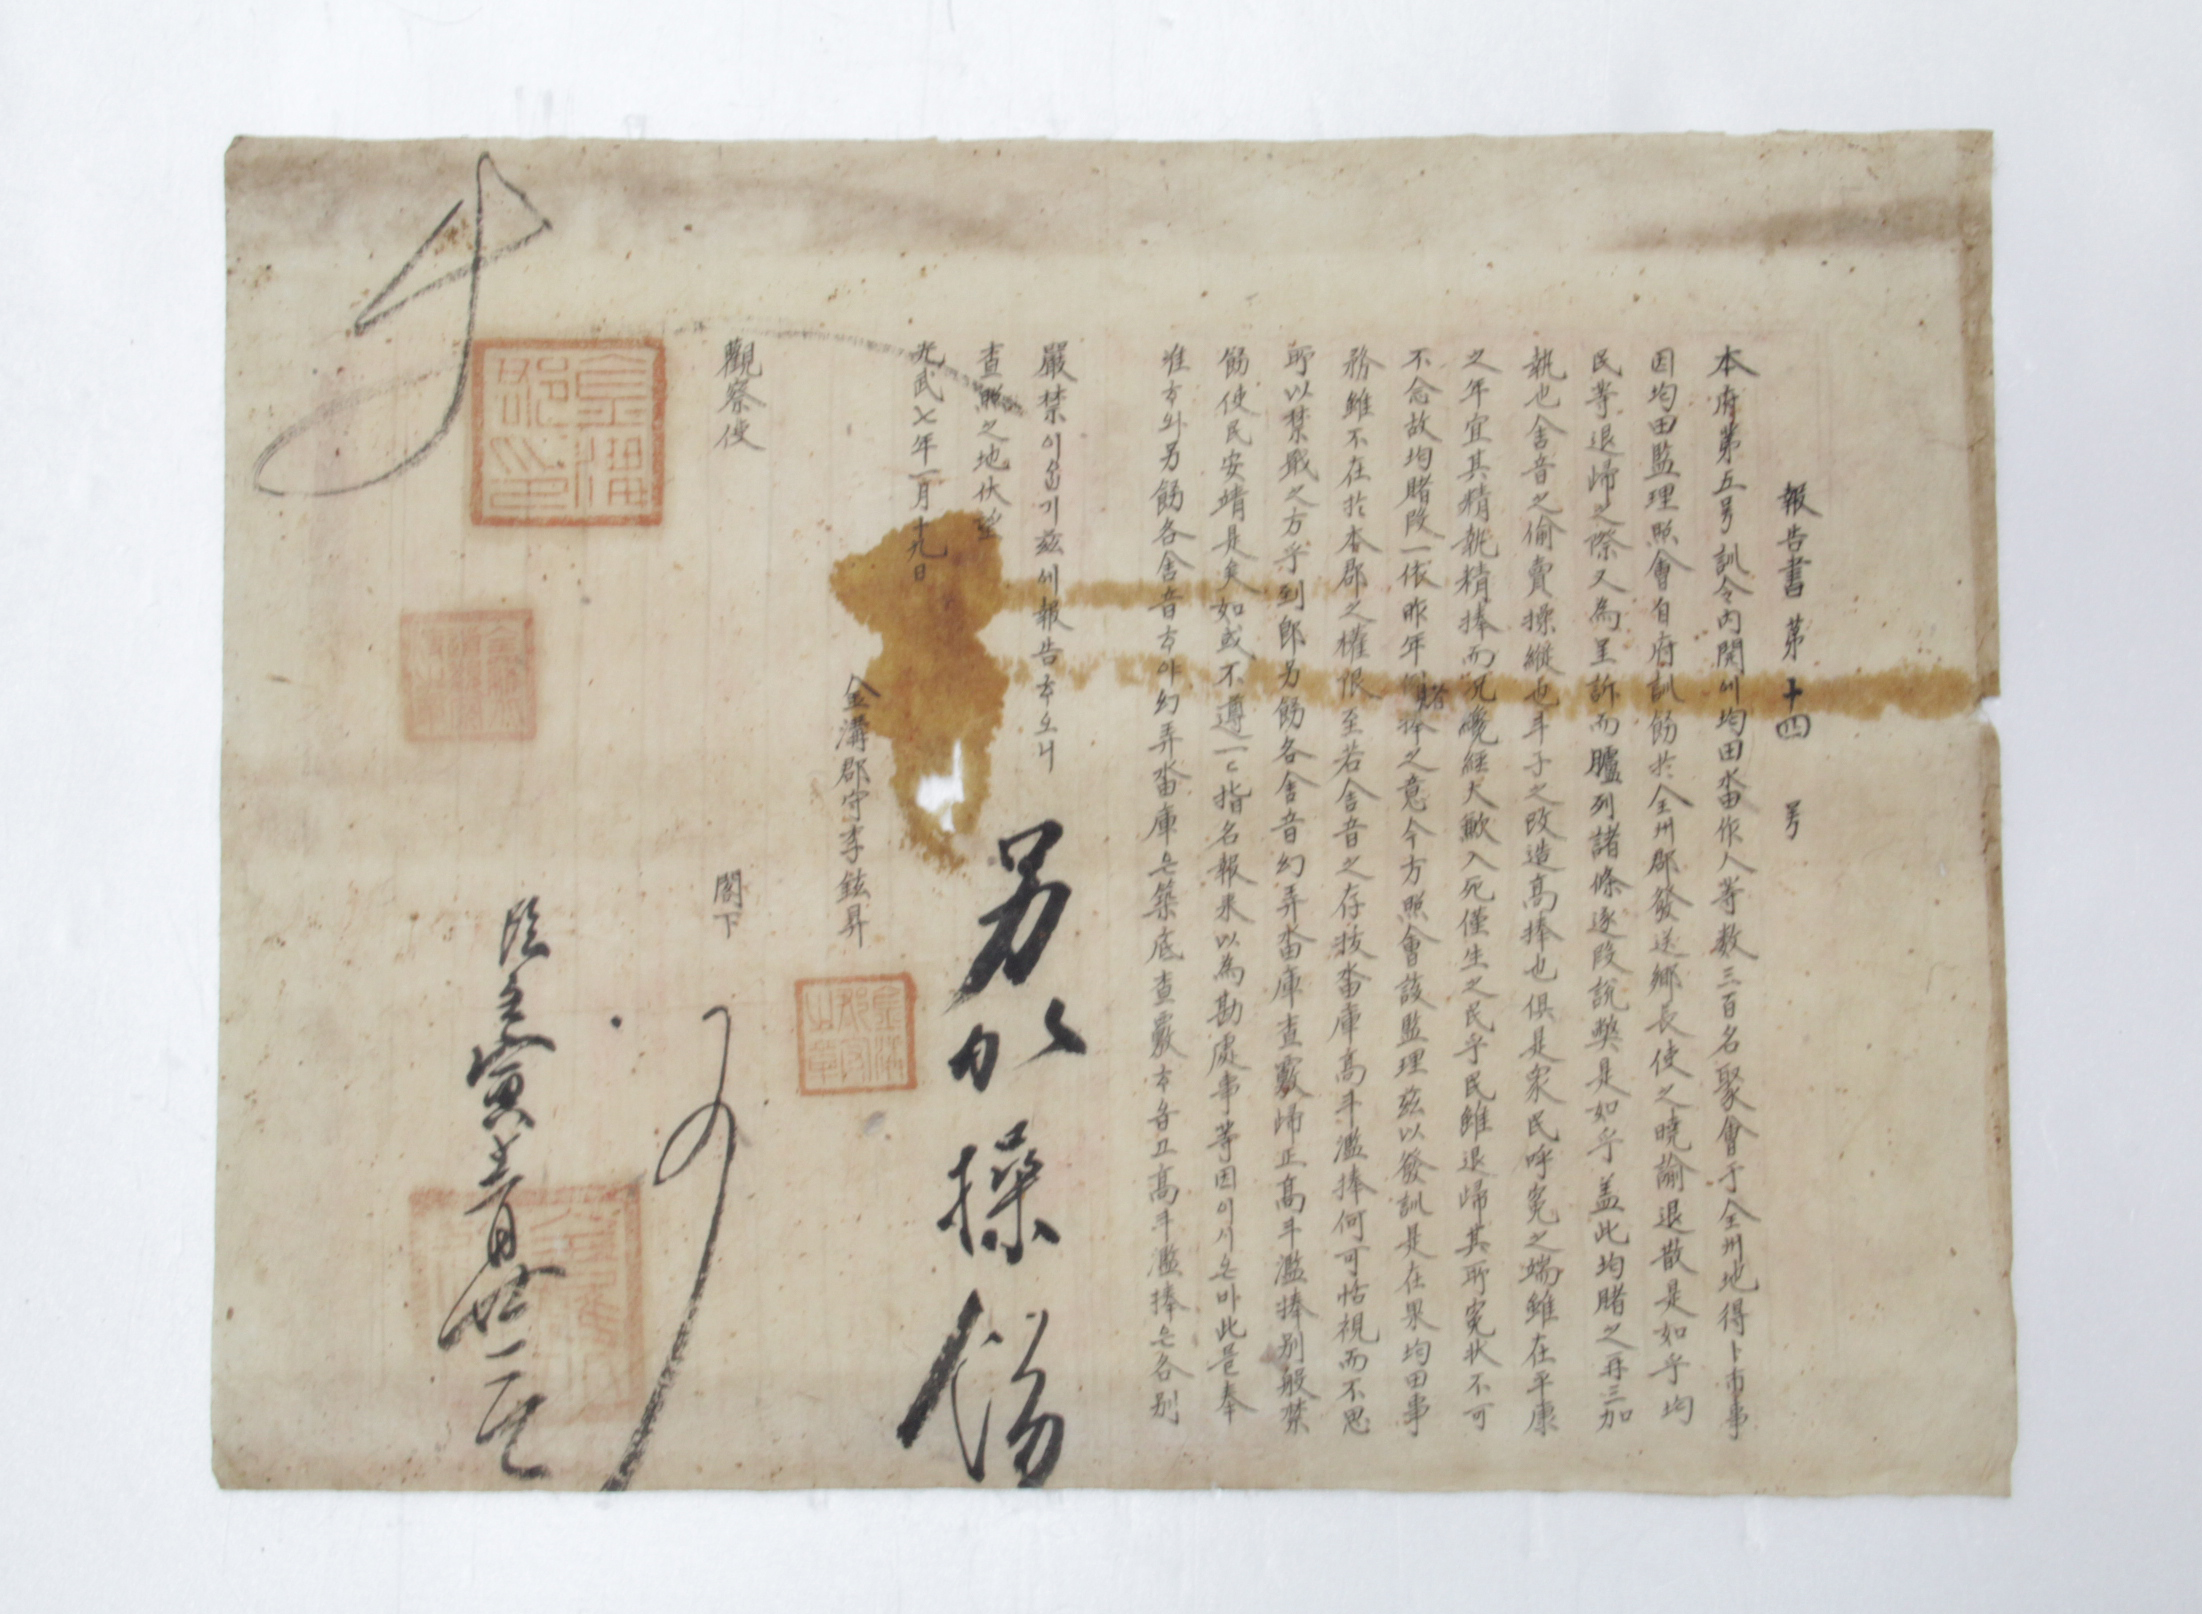 報告書 第 十四 号
本府第五号訓令內開에均田畓作人等数三百名聚會于全州地得卜市事
因均田監理照會自府訓飭於全州郡發送鄕長使之曉諭退散是如乎均
民等退歸之際又為呈訴而臚列諸條逐段說弊是如乎盖此均賭之再三加
執也舍音之偷賣操縱也斗子之改造高捧也俱是衆民呼寃之端雖在平康
之年宜其精執精捧而况纔經大歉入死僅生之民乎民雖退歸其所寃狀不可
不念故均賭段一依昨年賭捧之意今方照會該監理玆以發訓是在果均田事
務雖不在於本郡之權限至若舍音之存拔畓庫高斗濫捧何可恬視而不思
所以禁戢之方乎到卽另飭各舍音幻弄畓庫查覈歸正高斗濫捧别般禁
飭使民安靖是矣如或不遵一〻指名報来以為勘處事等因이시온바此믈奉
准하와另飭各舍音하야幻弄畓庫은築底查覈하옵고高斗濫捧은各别
嚴禁이옵기玆에報告하오니
查照之地伏望
光武七年一月十九日
金溝郡守李鉉昇
觀察使 閣下
另加操飭